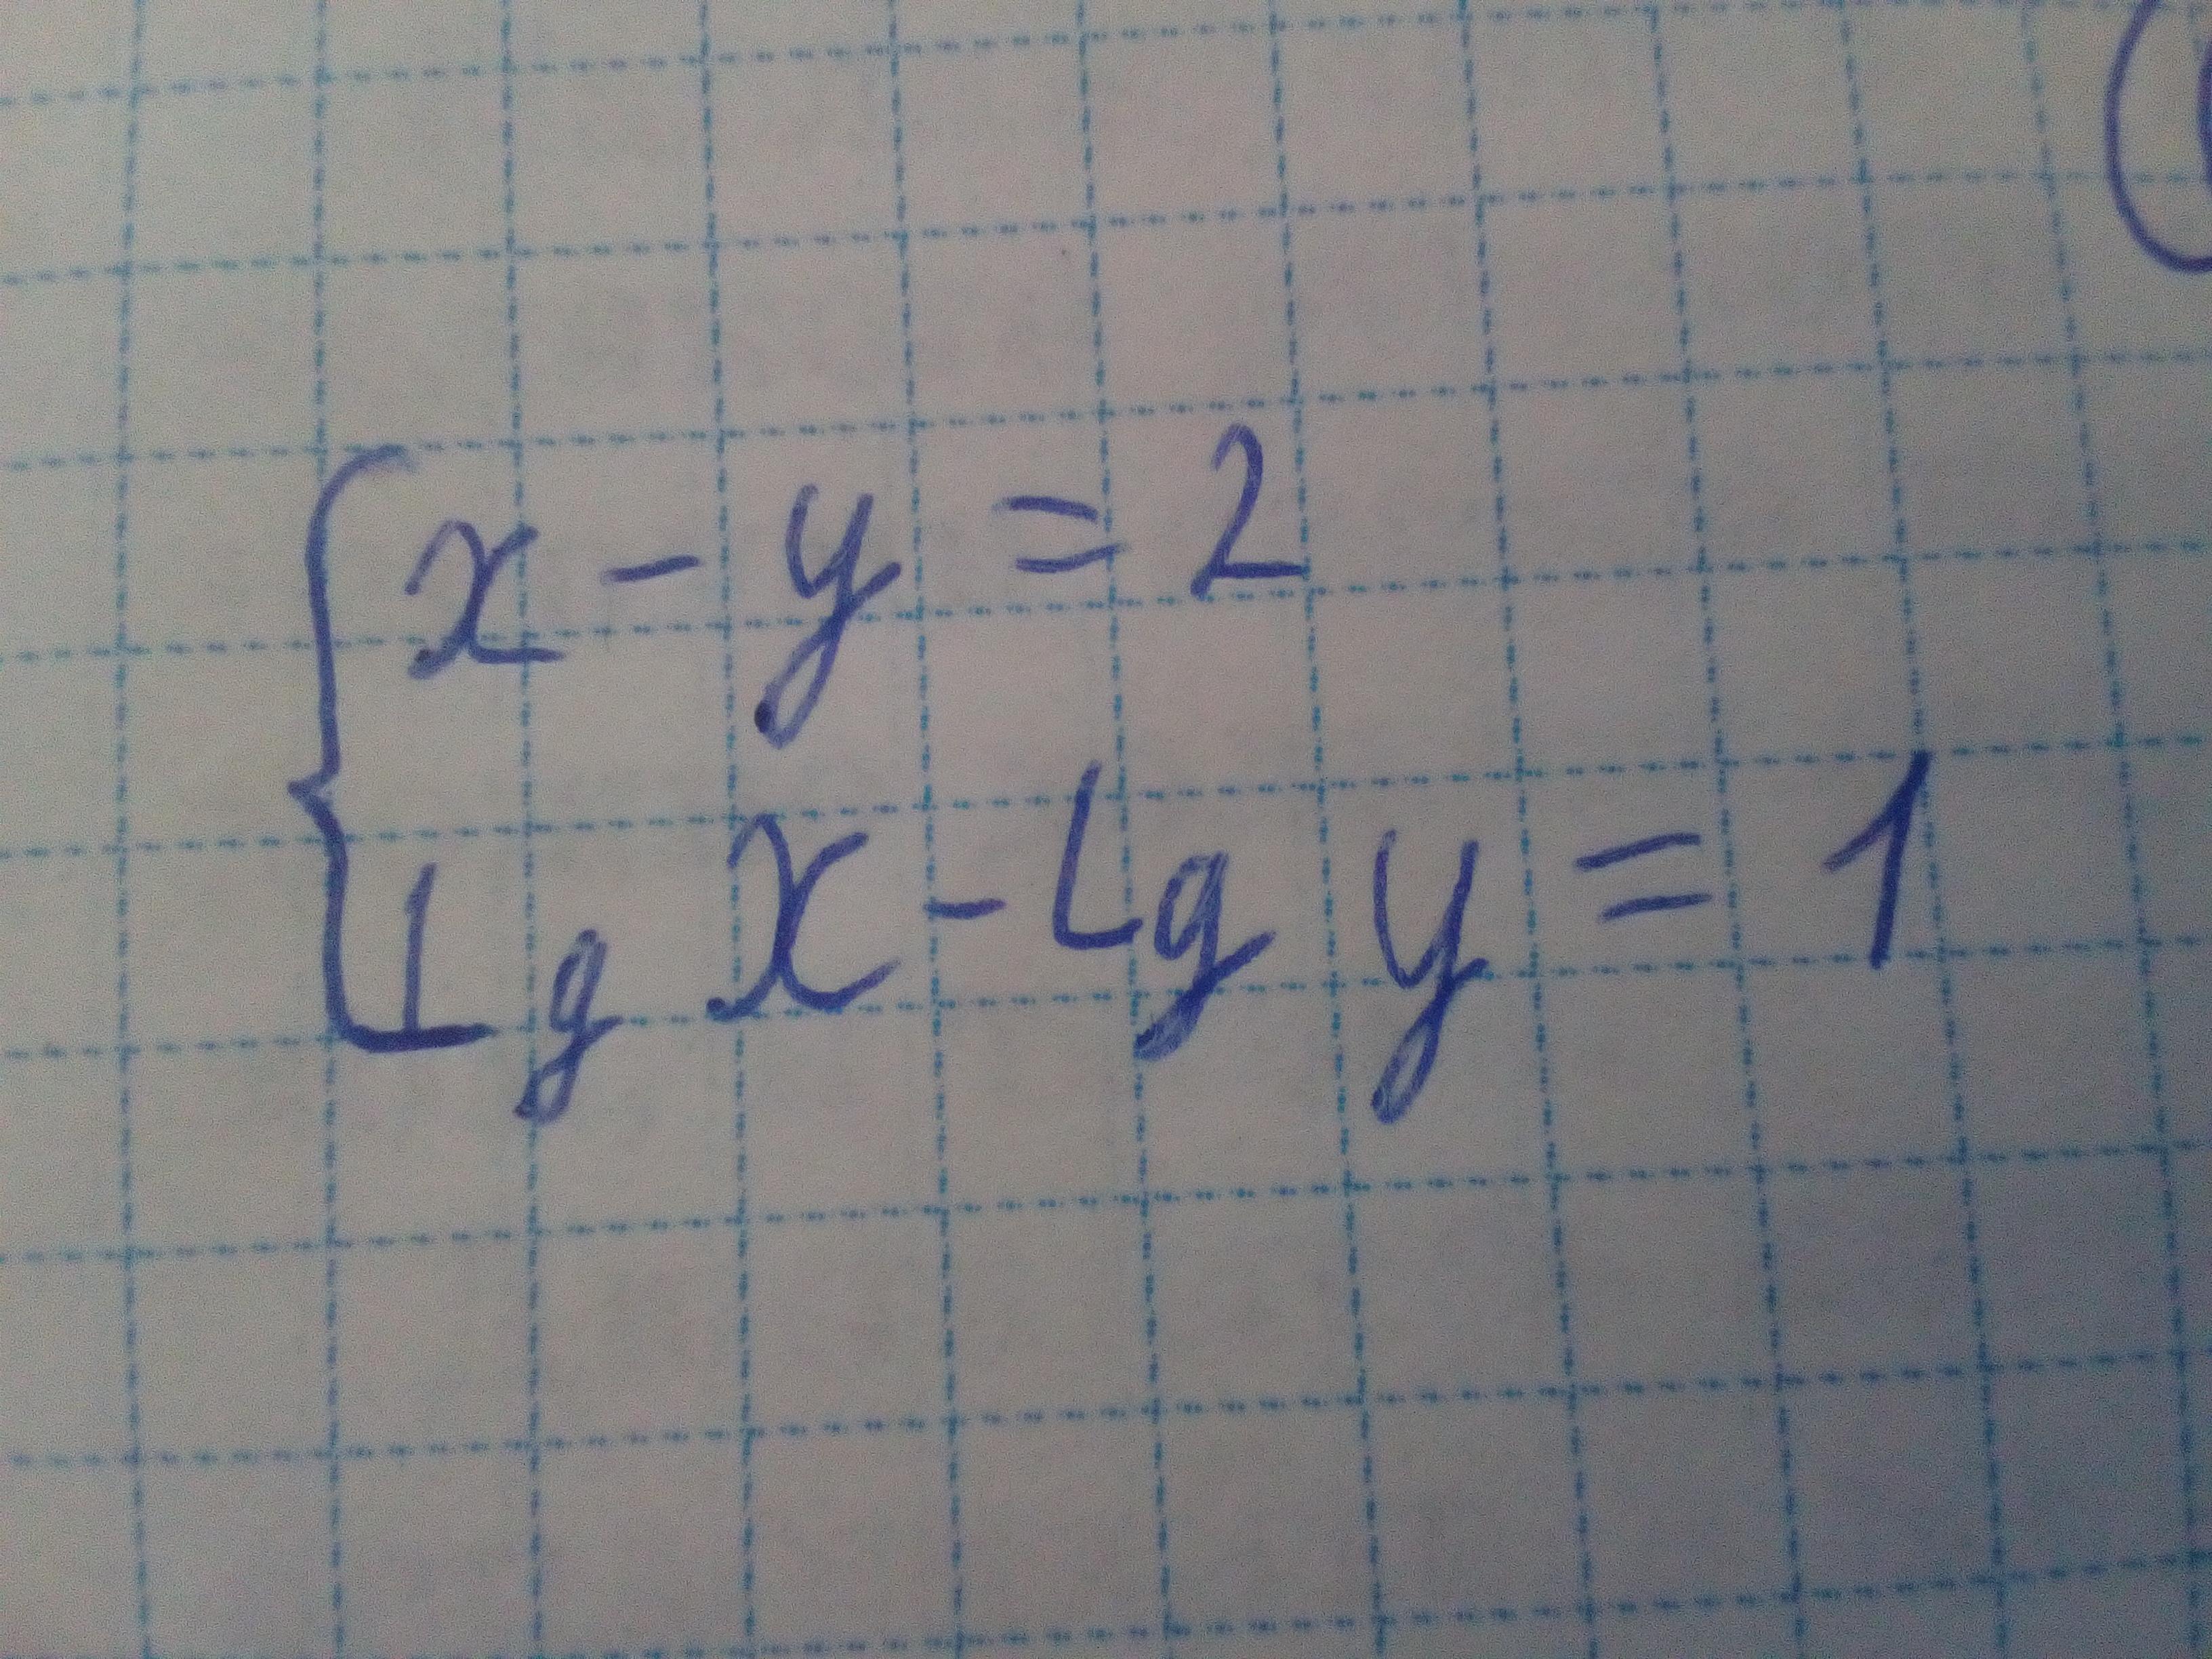 x - y = 2
Lg x - Lg y = 1